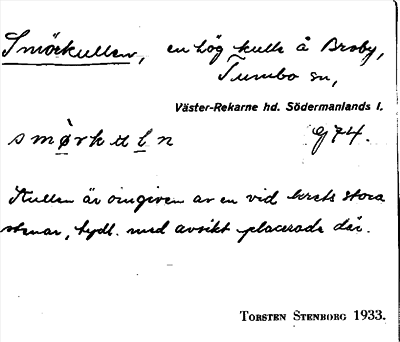 Smörkullen, en hög kulle å Broby,
Tumbo sn,
Väster-Rekarne hd. Södermanlands l.
smörkuln G 74.
Kullen är omgiven av en vid krets stora
stenar, tydl. med avsikt placerade där.
TORSTEN STENBORG 1933.